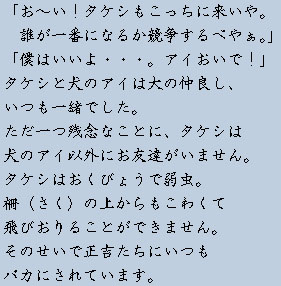 「お～い！タケシもこっちに来いや。
　誰が一番になるか競争するべやぁ。」
「僕はいいよ・・・。アイおいで！」
タケシと犬のアイは大の仲良し、
いつも一緒でした。
ただ一つ残念なことに、タケシは
犬のアイ以外にお友達がいません。
タケシはおくびょうで弱虫。
柵（さく）の上からもこわくて
飛びおりることができません。
そのせいで正吉たちにいつも
バカにされています。